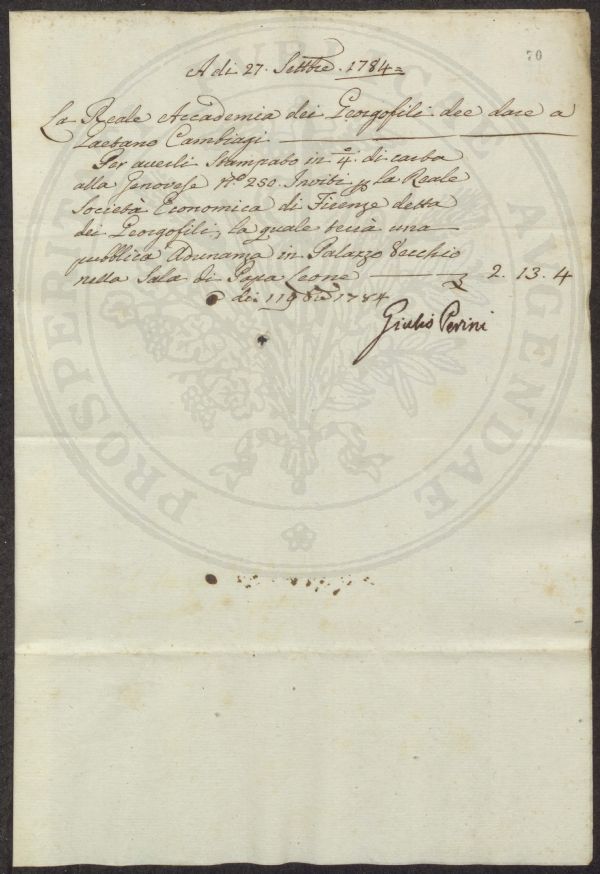 70
A di 27. Settbre. 1784=
La Reale Accademia dei Georgofili dee dare a
Gaetano Cambiagi
Per averli Stampato in 4.º di carta
alla Genovese Nº 250. Inviti p la Reale
Società Economica di Firenze detta
dei Georgofili, la quale terrà una
pubblica Adunanza in Palazzo Vecchio
nella Sala di Papa Leone 2. 13. 4
9bre 1784
Giulio Perini
PROSPERITATI PUBLICAE AUGENDAE